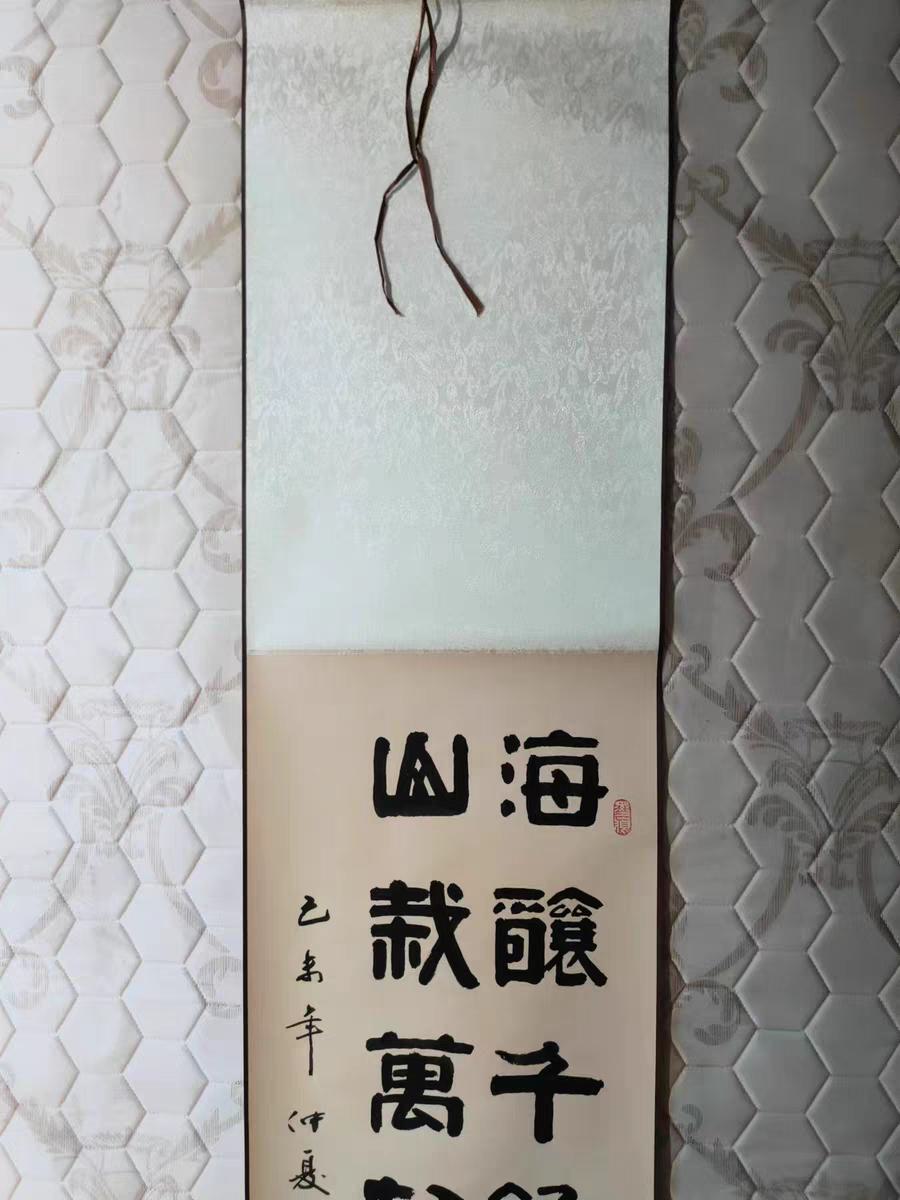 海釀千
山栽萬
己未年仲夏